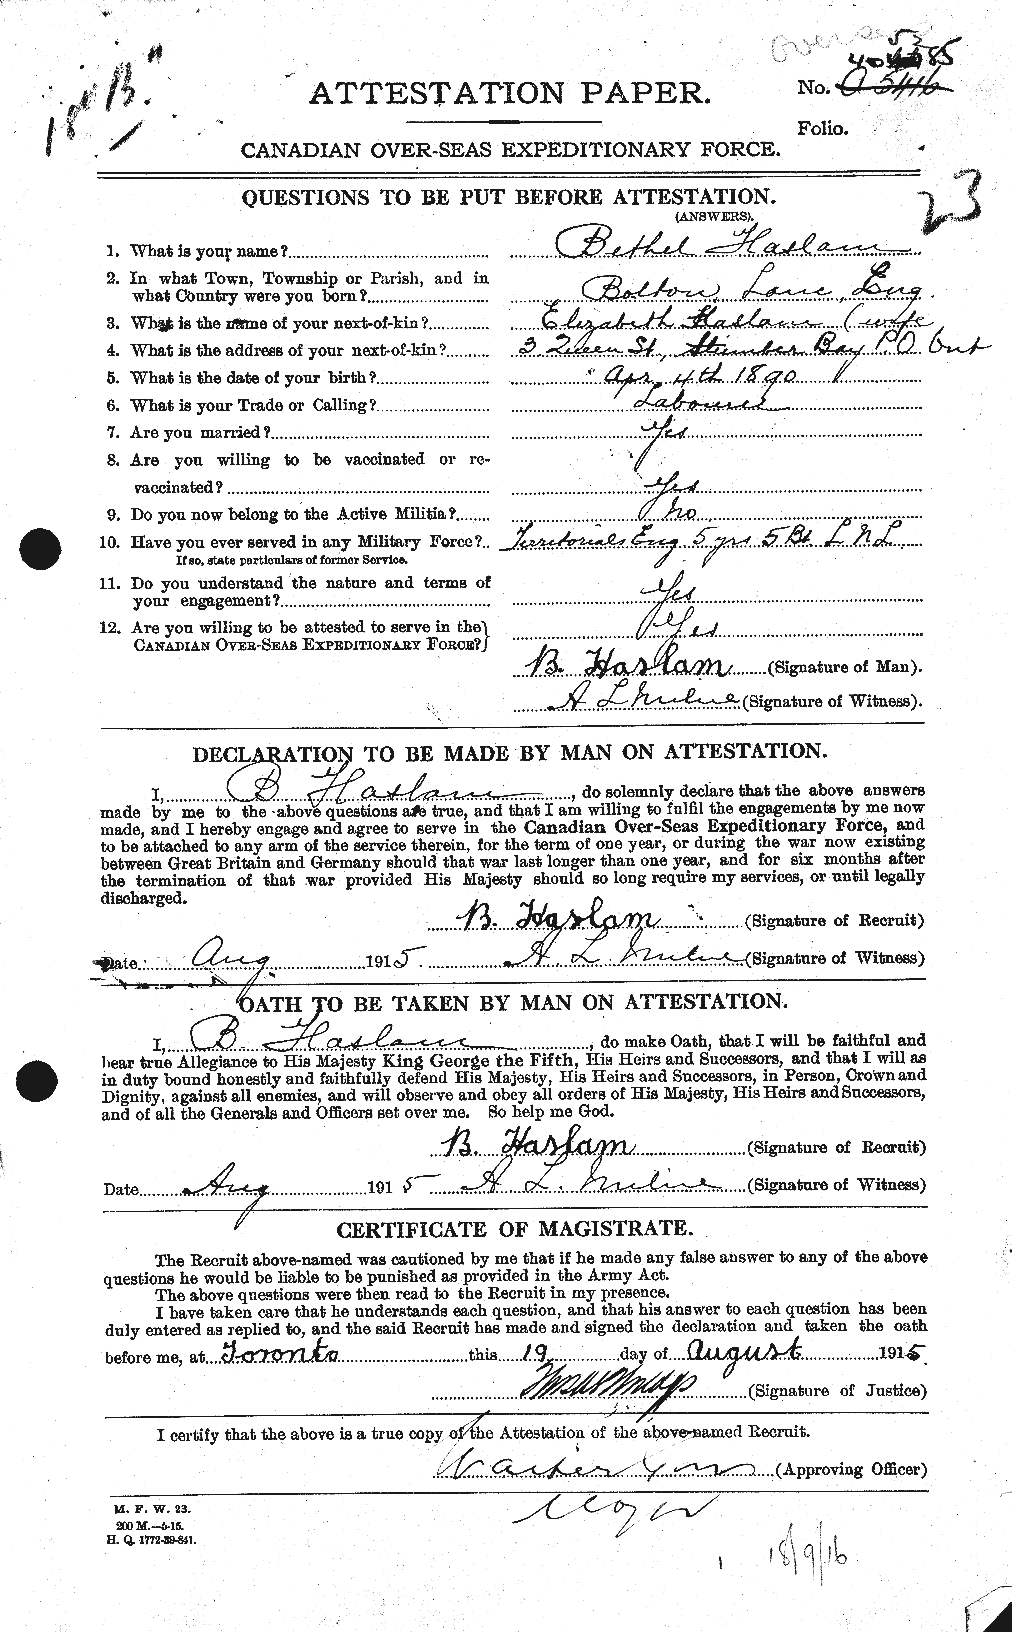 Overseas
18 "B."
53
ATTESTATION PAPER.
No. A 5446
Folio.
CANADIAN OVER-SEAS EXPEDITIONARY FORCE.
23
QUESTIONS TO BE PUT BEFORE ATTESTATION.
(ANSWERS).
1. What is your name? Bethel Haslam
2. In what Town, Township or Parish, and in
what Country were you born? Bolton, Lanc, Eng.
3. What is the name of your next-of-kin? Elizabeth Haslam (wife
4. What is the address of your next-of-kin? 3 Queen St, Bay P.O Ont
5. What is the date of your birth? Apr 4th 1890
6. What is your Trade or Calling? Labourer
7. Are you married? Yes
8. Are you willing to be vaccinated or re-
vaccinated? Yes
9. Do you now belong to the Active Militia? No
10. Have you ever served in any Military Force? Territorials Eng 5 yrs 5 Bt L N L
If so, state particulars of former Service.
11. Do you understand the nature and terms of
your engagement? Yes
12. Are you willing to be attested to serve in the
CANADIAN OVER-SEAS EXPEDITIONARY FORCE? Yes
B. Haslam (Signature of Man).
A L Milne (Signature of Witness).
DECLARATION TO BE MADE BY MAN ON ATTESTATION.
I, B Haslam, do solemnly declare that the above answers
made by me to the above questions are true, and that I am willing to fulfil the engagements by me now
made, and I hereby engage and agree to serve in the Canadian Over-Seas Expeditionary Force, and
to be attached to any arm of the service therein, for the term of one year, or during the war now existing
between Great Britain and Germany should that war last longer than one year, and for six months after
the termination of that war provided His Majesty should so long require my services, or until legally
discharged.
B. Haslam (Signature of Recruit)
Date Aug 1915. A. L Milne (Signature of Witness)
OATH TO BE TAKEN BY MAN ON ATTESTATION.
I, B Haslam, do make Oath, that I will be faithful and
bear true Allegiance to His Majesty King George the Fifth, His Heirs and Successors, and that I will as
in duty bound honestly and faithfully defend His Majesty, His Heirs and Successors, in Person, Crown and
Dignity, against all enemies, and will observe and obey all orders of His Majesty, His Heirs and Successors,
and of all the Generals and Officers set over me. So help me God.
B. Haslam (Signature of Recruit)
Date Aug 1915 A. L. Milne (Signature of Witness)
CERTIFICATE OF MAGISTRATE.
The Recruit above-named was cautioned by me that if he made any false answer to any of the above
questions he would be liable to be punished as provided in the Army Act.
The above questions were then read to the Recruit in my presence.
I have taken care that he understands each question, and that his answer to each question has been
duly entered as replied to, and the said Recruit has made and signed the declaration and taken the oath
before me, at Toronto this 19 day of August 1915
(Signature of Justice)
I certify that the above is a true copy of the Attestation of the above-named Recruit.
(Approving Officer)
Major
M. F. W. 23.
200 M.—5-15.
H. Q. 1772-39-841.
18/9/16